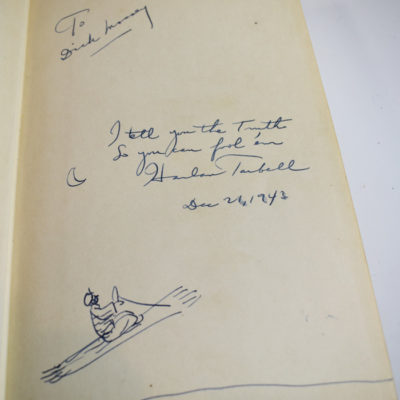 To
Dick
I tell you the Truth
So you can fool 'em
Harlan Tarbell
Dec 26, 1943